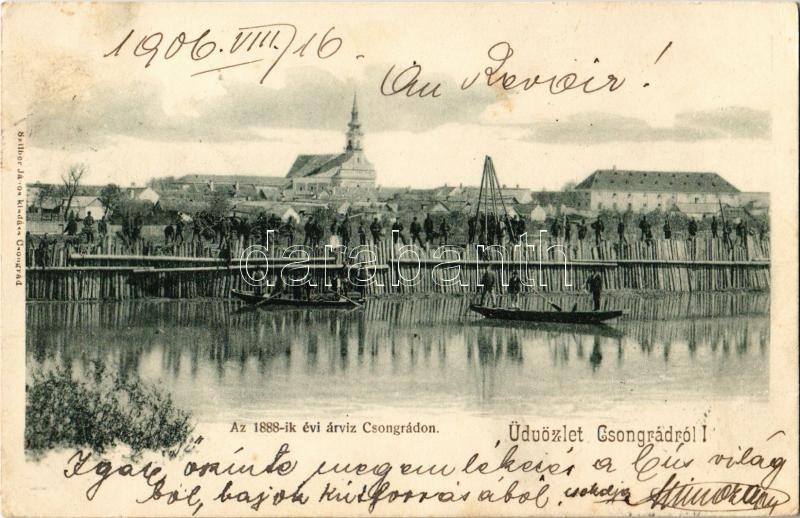 1906. VIII. / 16.
Au Revoir!
Szilber János kiadása Csongrád
darabanth
Az 1888-ik évi árviz Csongrádon.
Üdvözlet Csongrádról!
Igaz, őszinte megemlékezés a bús világ
ból, bajok kútforrásából. csókolja